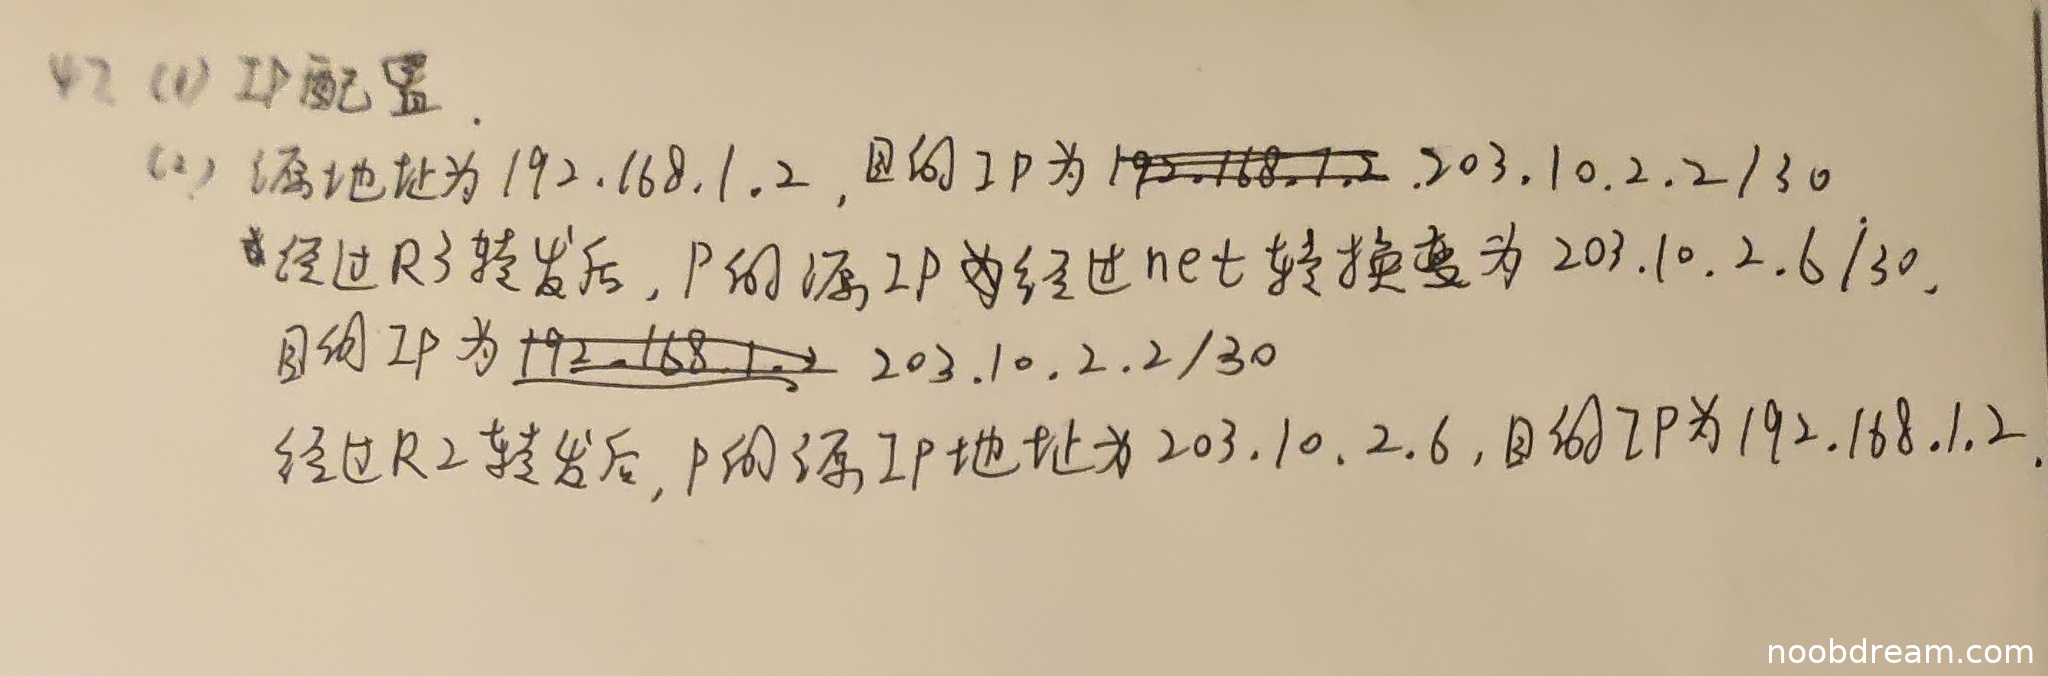 42 (1) IP配置.
(2) 源地址为192.168.1.2,目的IP为192.168.1.2 .203.10.2.2/30
经过R3转发后,P的源IP为经过net转换变为203.10.2.6/30.
目的IP为192.168.1.2 203.10.2.2/30
经过R2转发后,P的源IP地址为203.10.2.6,目的IP为192.168.1.2.
noobdream.com